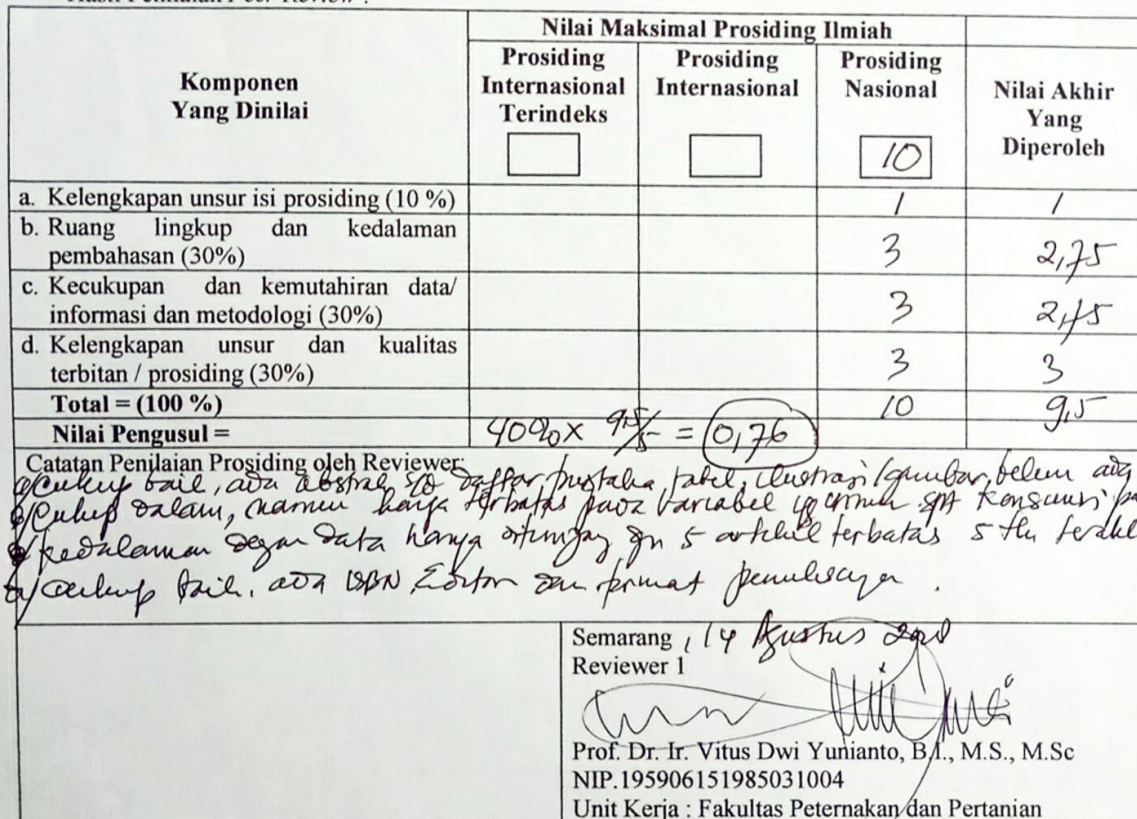 Hasil Penilaian Peer Review :
Nilai Maksimal Prosiding Ilmiah
Komponen
Yang Dinilai
Prosiding
Internasional
Terindeks
Prosiding
Internasional
Prosiding
Nasional
10
Nilai Akhir
Yang
Diperoleh
a. Kelengkapan unsur isi prosiding (10 %) 1 1
b. Ruang lingkup dan kedalaman
pembahasan (30%) 3 2,75
c. Kecukupan dan kemutahiran data/
informasi dan metodologi (30%) 3 2,75
d. Kelengkapan unsur dan kualitas
terbitan / prosiding (30%) 3 3
Total = (100 %) 10 9,5
Nilai Pengusul = 40% x 9,5/5 = 0,76
Catatan Penilaian Prosiding oleh Reviewer:
a/ Cukup baik, ada abstrak s/d daftar pustaka, tabel, ilustrasi/gambar, belum ada
b/ Cukup dalam, namun hanya terbatas pada variabel yg umum spt konsumsi
c/ kedalaman data hanya ditunjang dn 5 artikel terbatas 5 th
d/ cukup baik, ada ISBN, Editor dan format penulisannya.
Semarang, 14 Agustus
Reviewer 1
Prof. Dr. Ir. Vitus Dwi Yunianto, B.I., M.S., M.Sc
NIP.195906151985031004
Unit Kerja : Fakultas Peternakan dan Pertanian